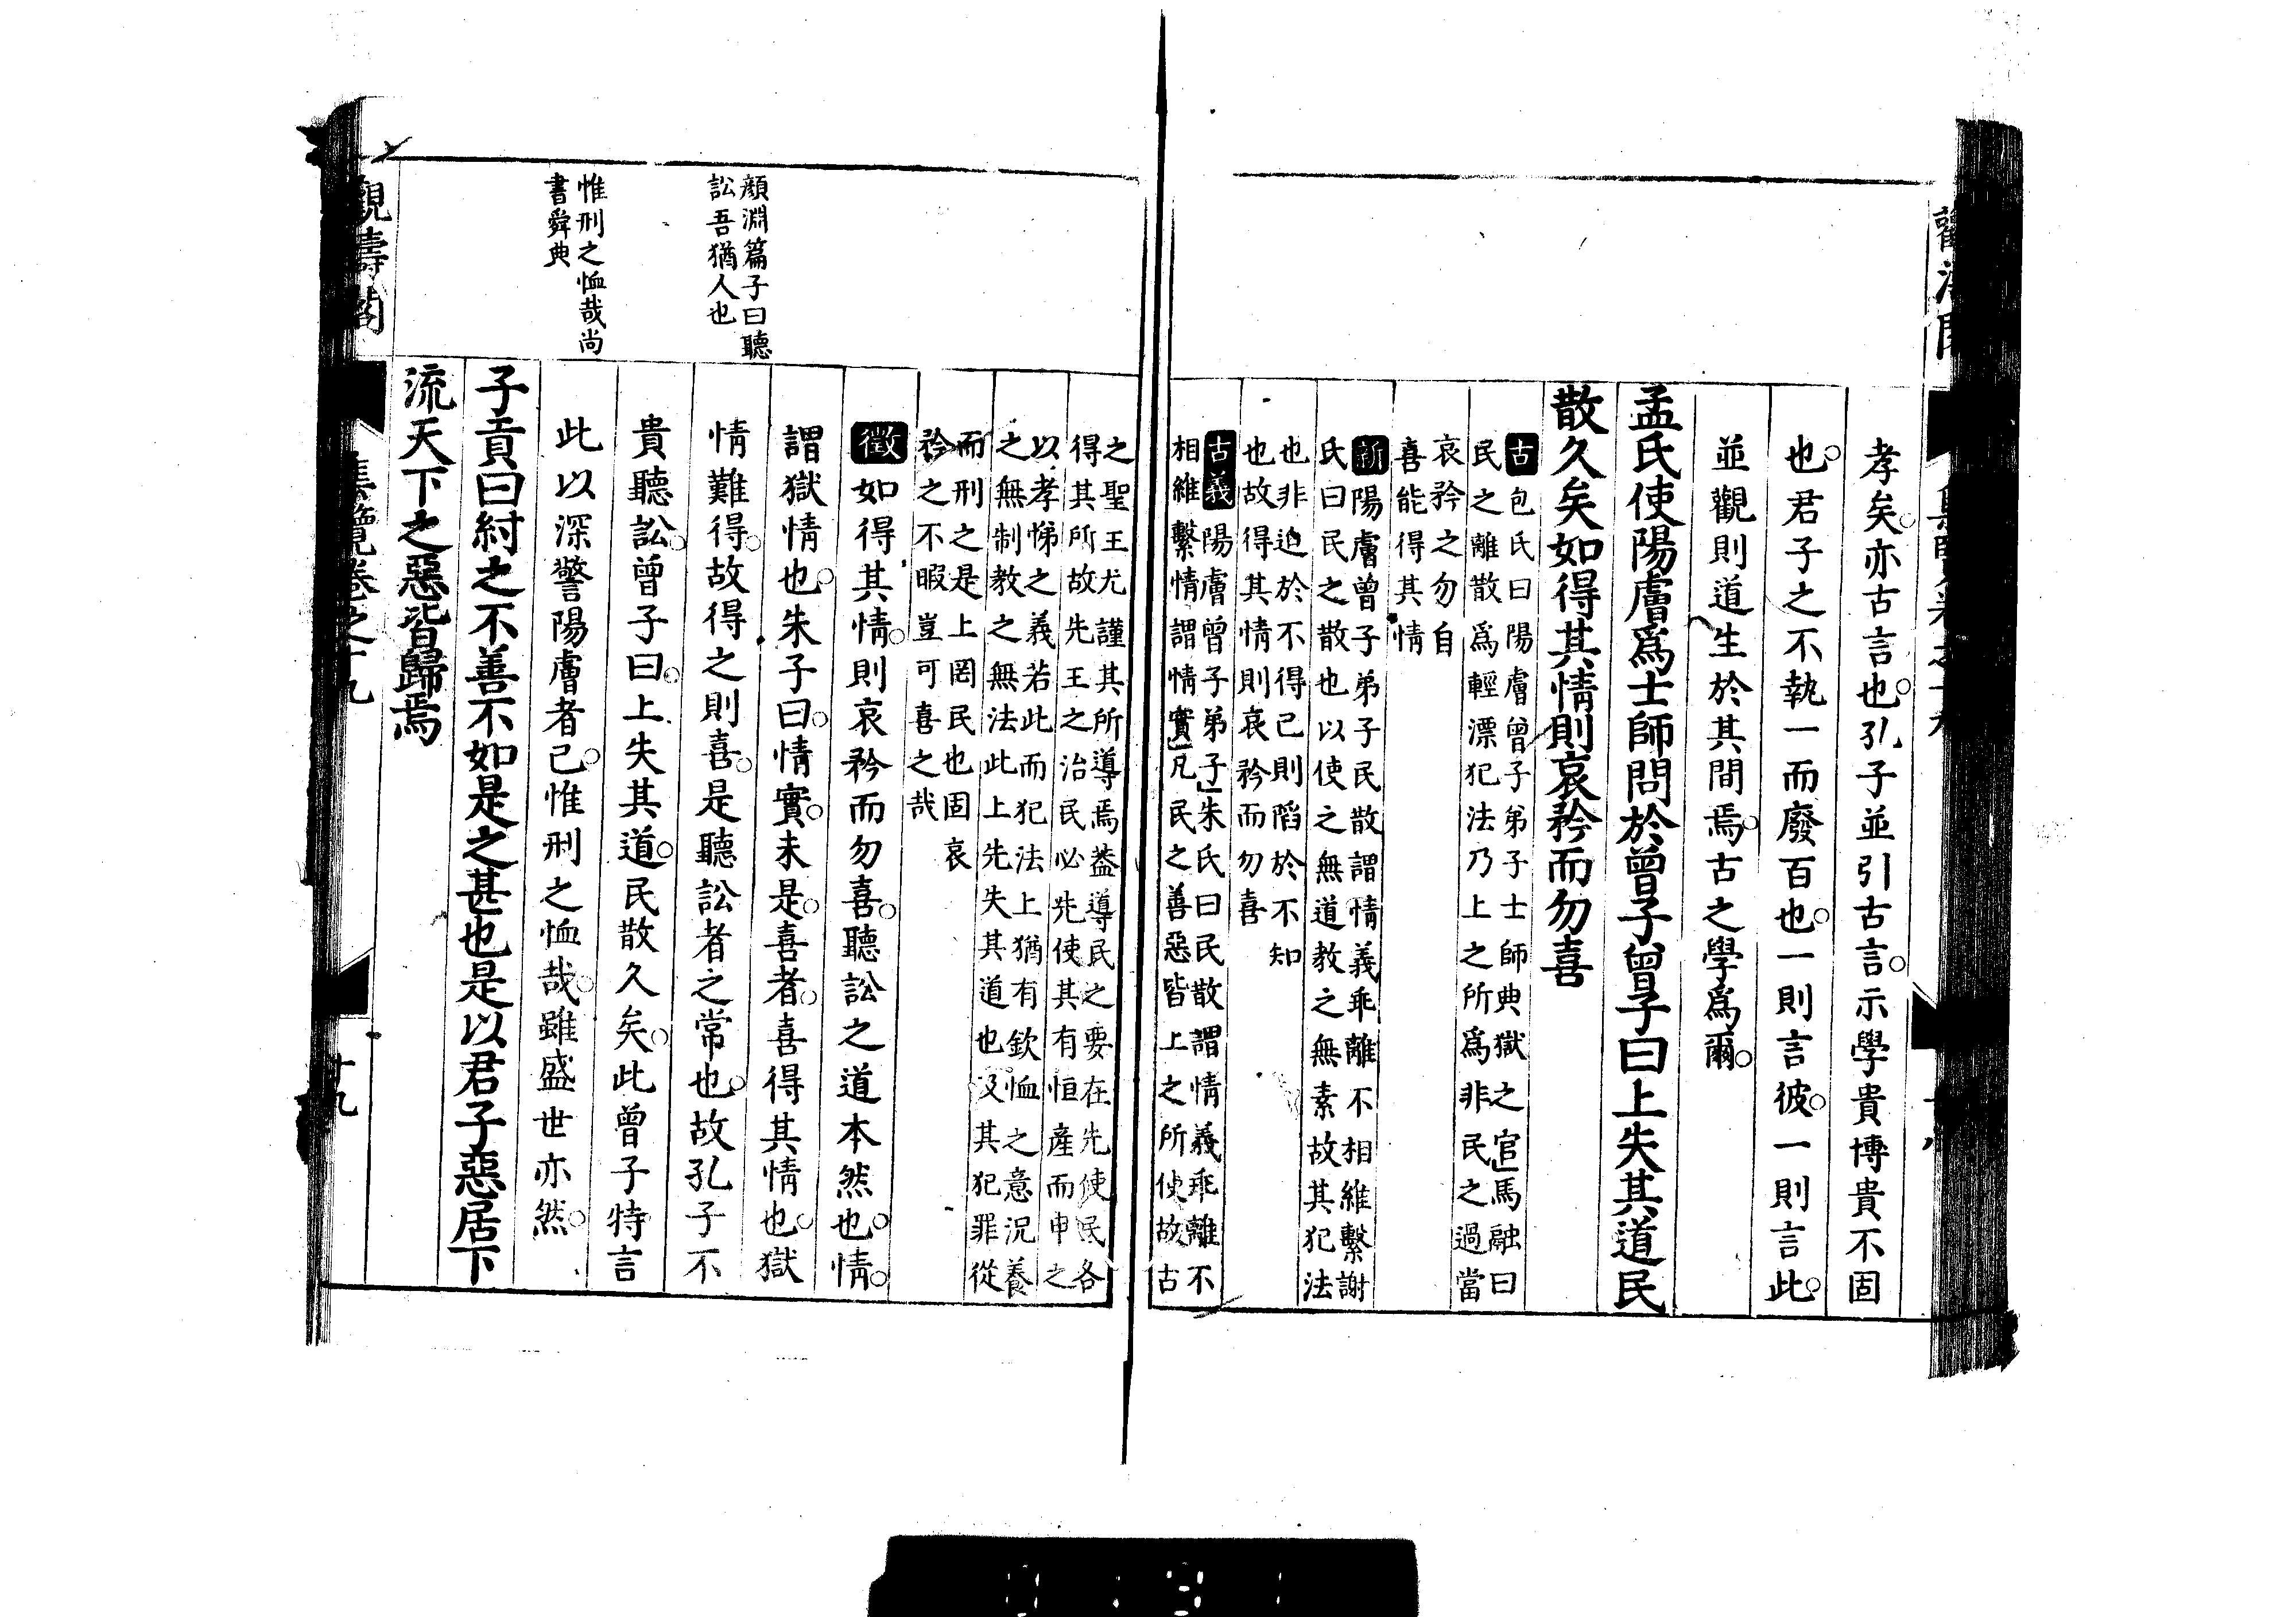 孝矣亦古言也孔子並引古言示學貴博貴不固
也君子之不執一而廢百也一則言彼一則言此
並觀則道生於其間焉古之學爲爾
孟氏使陽膚爲士師問於曾子曾子曰上失其道民
散久矣如得其情則哀矜而勿喜
古包氏曰陽膚曾子弟子士師典獄之官馬融曰
民之離散爲輕漂犯法乃上之所爲非民之過當
哀矜之勿自
喜能得其情
新陽膚曾子弟子民散謂情義乖離不相維繫謝
氏曰民之散也以使之無道教之無素故其犯法
也非迫於不得已則陷於不知
也故得其情則哀矜而勿喜
古義陽膚曾子弟子朱氏曰民散謂情義乖離不
相維繫情謂情實凡民之善惡皆上之所使故古
之聖王尤謹其所導焉蓋導民之要在先使民各
得其所故先王之治民必先使其有恒産而申之
以孝悌之義若此而犯法上猶有欽恤之意況養
之無制教之無法此上先失其道也及其犯罪從
而刑之是上罔民也固哀
矜之不暇豈可喜之哉
徵如得其情則哀矜而勿喜聽訟之道本然也情
謂獄情也朱子曰情實未是喜者喜得其情也獄
情難得故得之則喜是聽訟者之常也故孔子不
貴聽訟曾子曰上失其道民散久矣此曾子特言
此以深警陽膚者已惟刑之恤哉雖盛世亦然
子貢曰紂之不善不如是之甚也是以君子惡居下
流天下之惡皆歸焉
顔淵篇子曰聽
訟吾猶人也
惟刑之恤哉尚
書舜典
觀濤閣
集覽卷之十九
十九